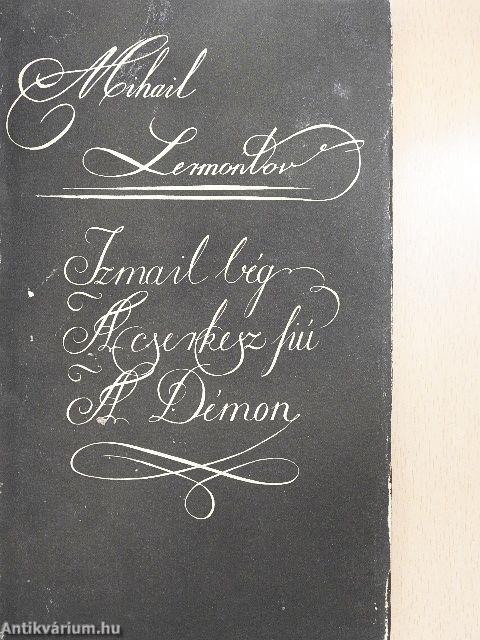 Mihail
Lermontov
Izmail bég
A cserkesz fiú
A Démon
Antikvárium.hu